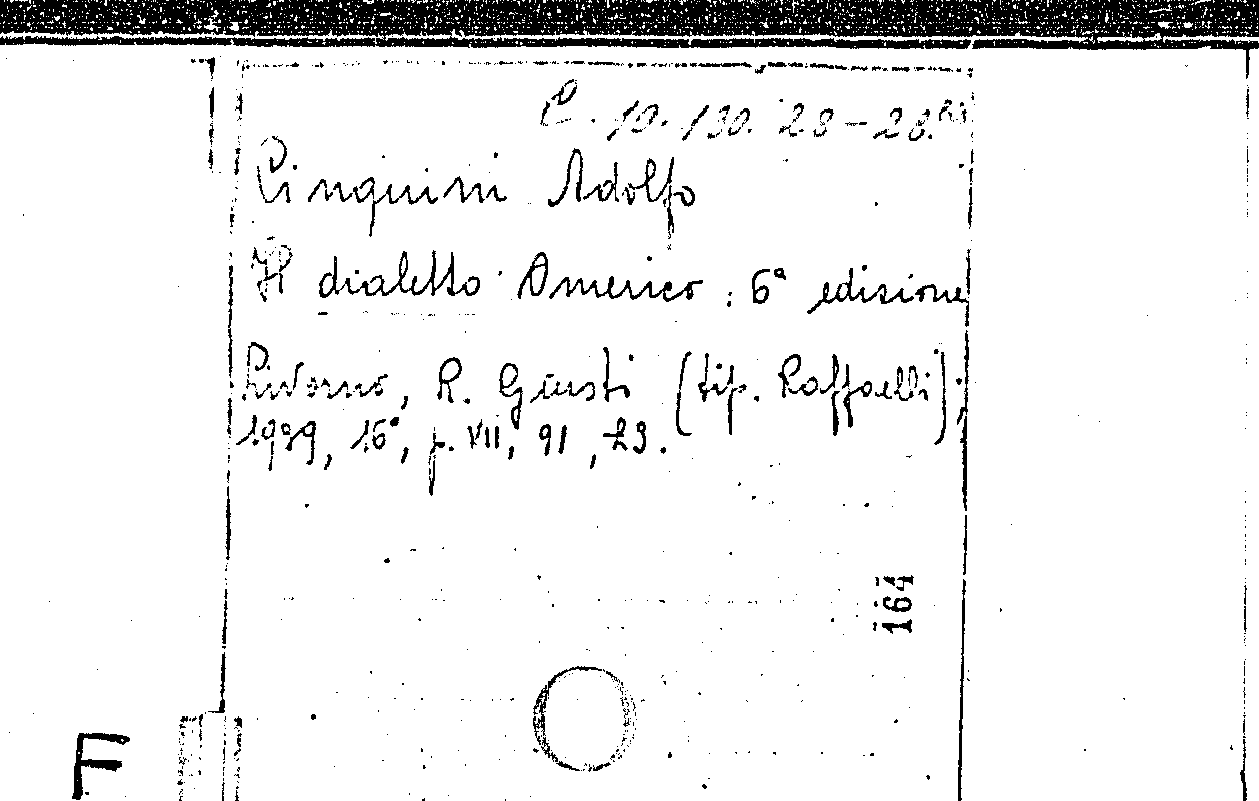 C. 10. 130. 28-28.bis
Cinquini Adolfo
Il dialetto Omerico : 6ª edizione
Livorno, R. Giusti (tip. Raffaelli);
1939, 16°, p. VII, 91, L3.
164
F